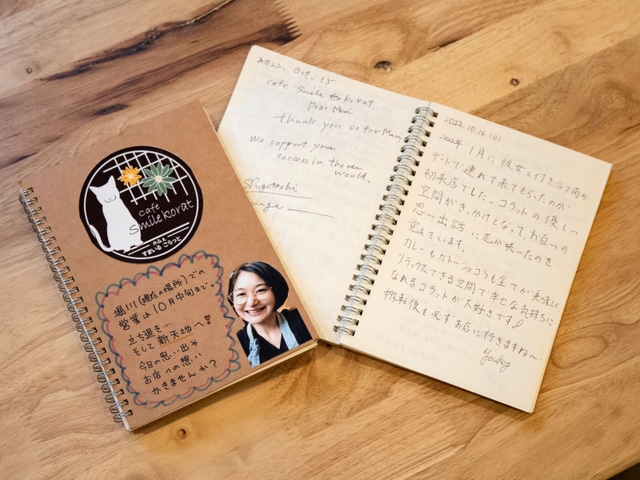 cafe
Smilekorat
かふぇ
すまいる こらっと
堀川(現在の場所)での
営業は10月中旬まで。
立ち退き…
そして新天地へ♡
今日の思い出や
お店への想い
かきませんか?
2022. Oct. 15
cafe Smile korat
Dear Mami
thank you so far Mami
We support your
success in the new
world.
Shigetoshi
2022. 10. 16 (日)
2022年 1月に彼女と付き合う前の
デートで連れて来てもらったのが
初来店でした。コラットの優しい
空間がきっかけとなって、お互いの
思い出話に花が咲いたのを
覚えています。
カレーもガトーショコラも全てが美味しい
リラックスできる空間で幸せな気持ちに
なれるコラットが大好きです!
移転後も必ずお店に行きますね〜